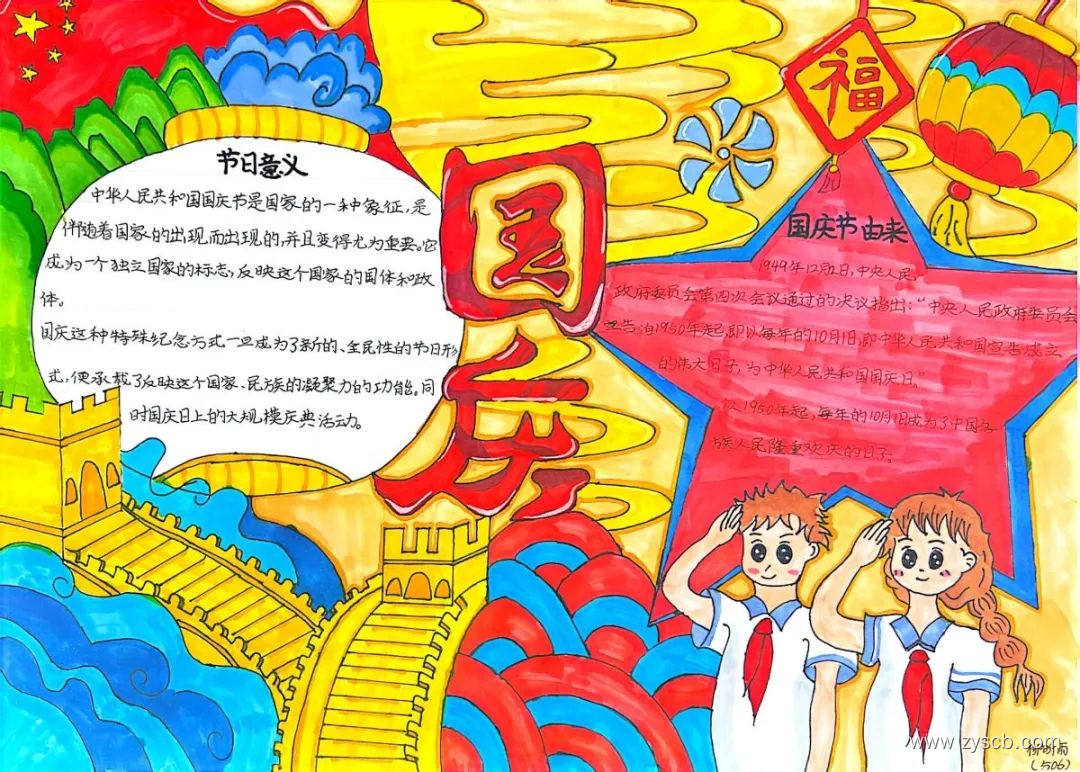 节日意义
中华人民共和国国庆节是国家的一种象征,是
伴随着国家的出现而出现的,并且变得尤为重要。它
成为一个独立国家的标志,反映这个国家的国体和政
体。
国庆这种特殊纪念方式一旦成为了新的、全民性的节日形
式,便承载了反映这个国家、民族的凝聚力的功能。同
时国庆日上的大规模庆典活动。
国庆
福
国庆节由来
1949年12月2日,中央人民
政府委员会第四次会议通过的决议指出:“中央人民政府委员会
宣告:自1950年起,即以每年的10月1日,即中华人民共和国宣告成立
的伟大日子,为中华人民共和国国庆日。”
从1950年起,每年的10月1日成为了中国各
族人民隆重欢庆的日子。
www.zyscb.com
(506)